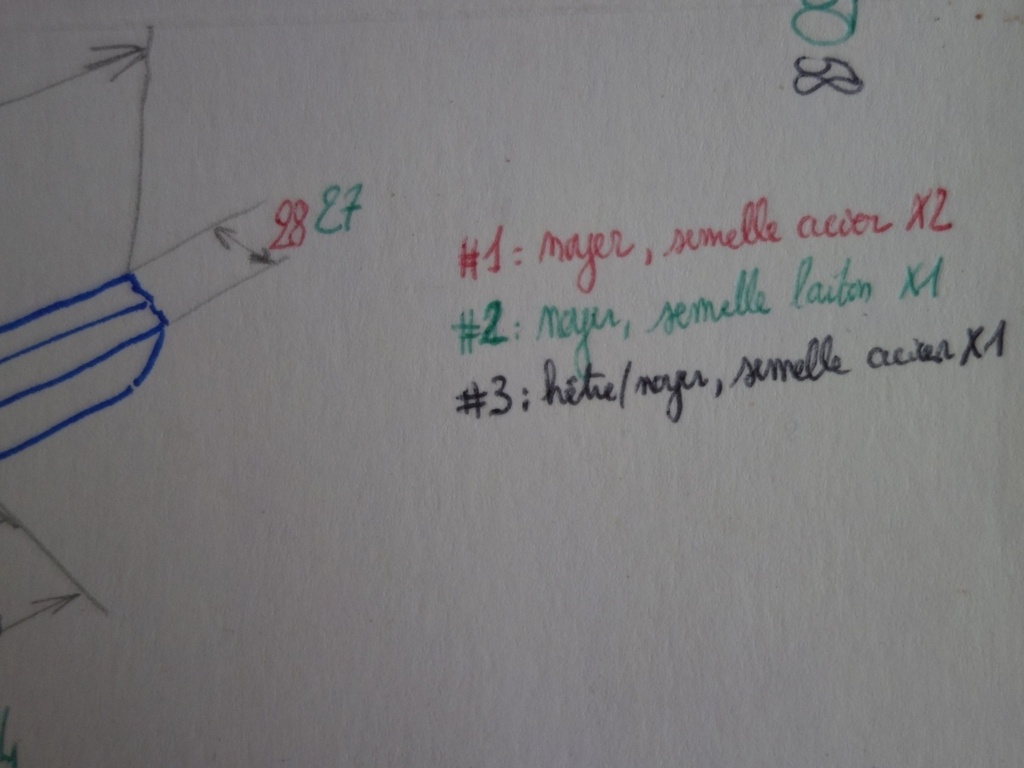 28 27
#1: noyer, semelle acier X2
#2: noyer, semelle laiton X1
#3: hêtre/noyer, semelle acier X1